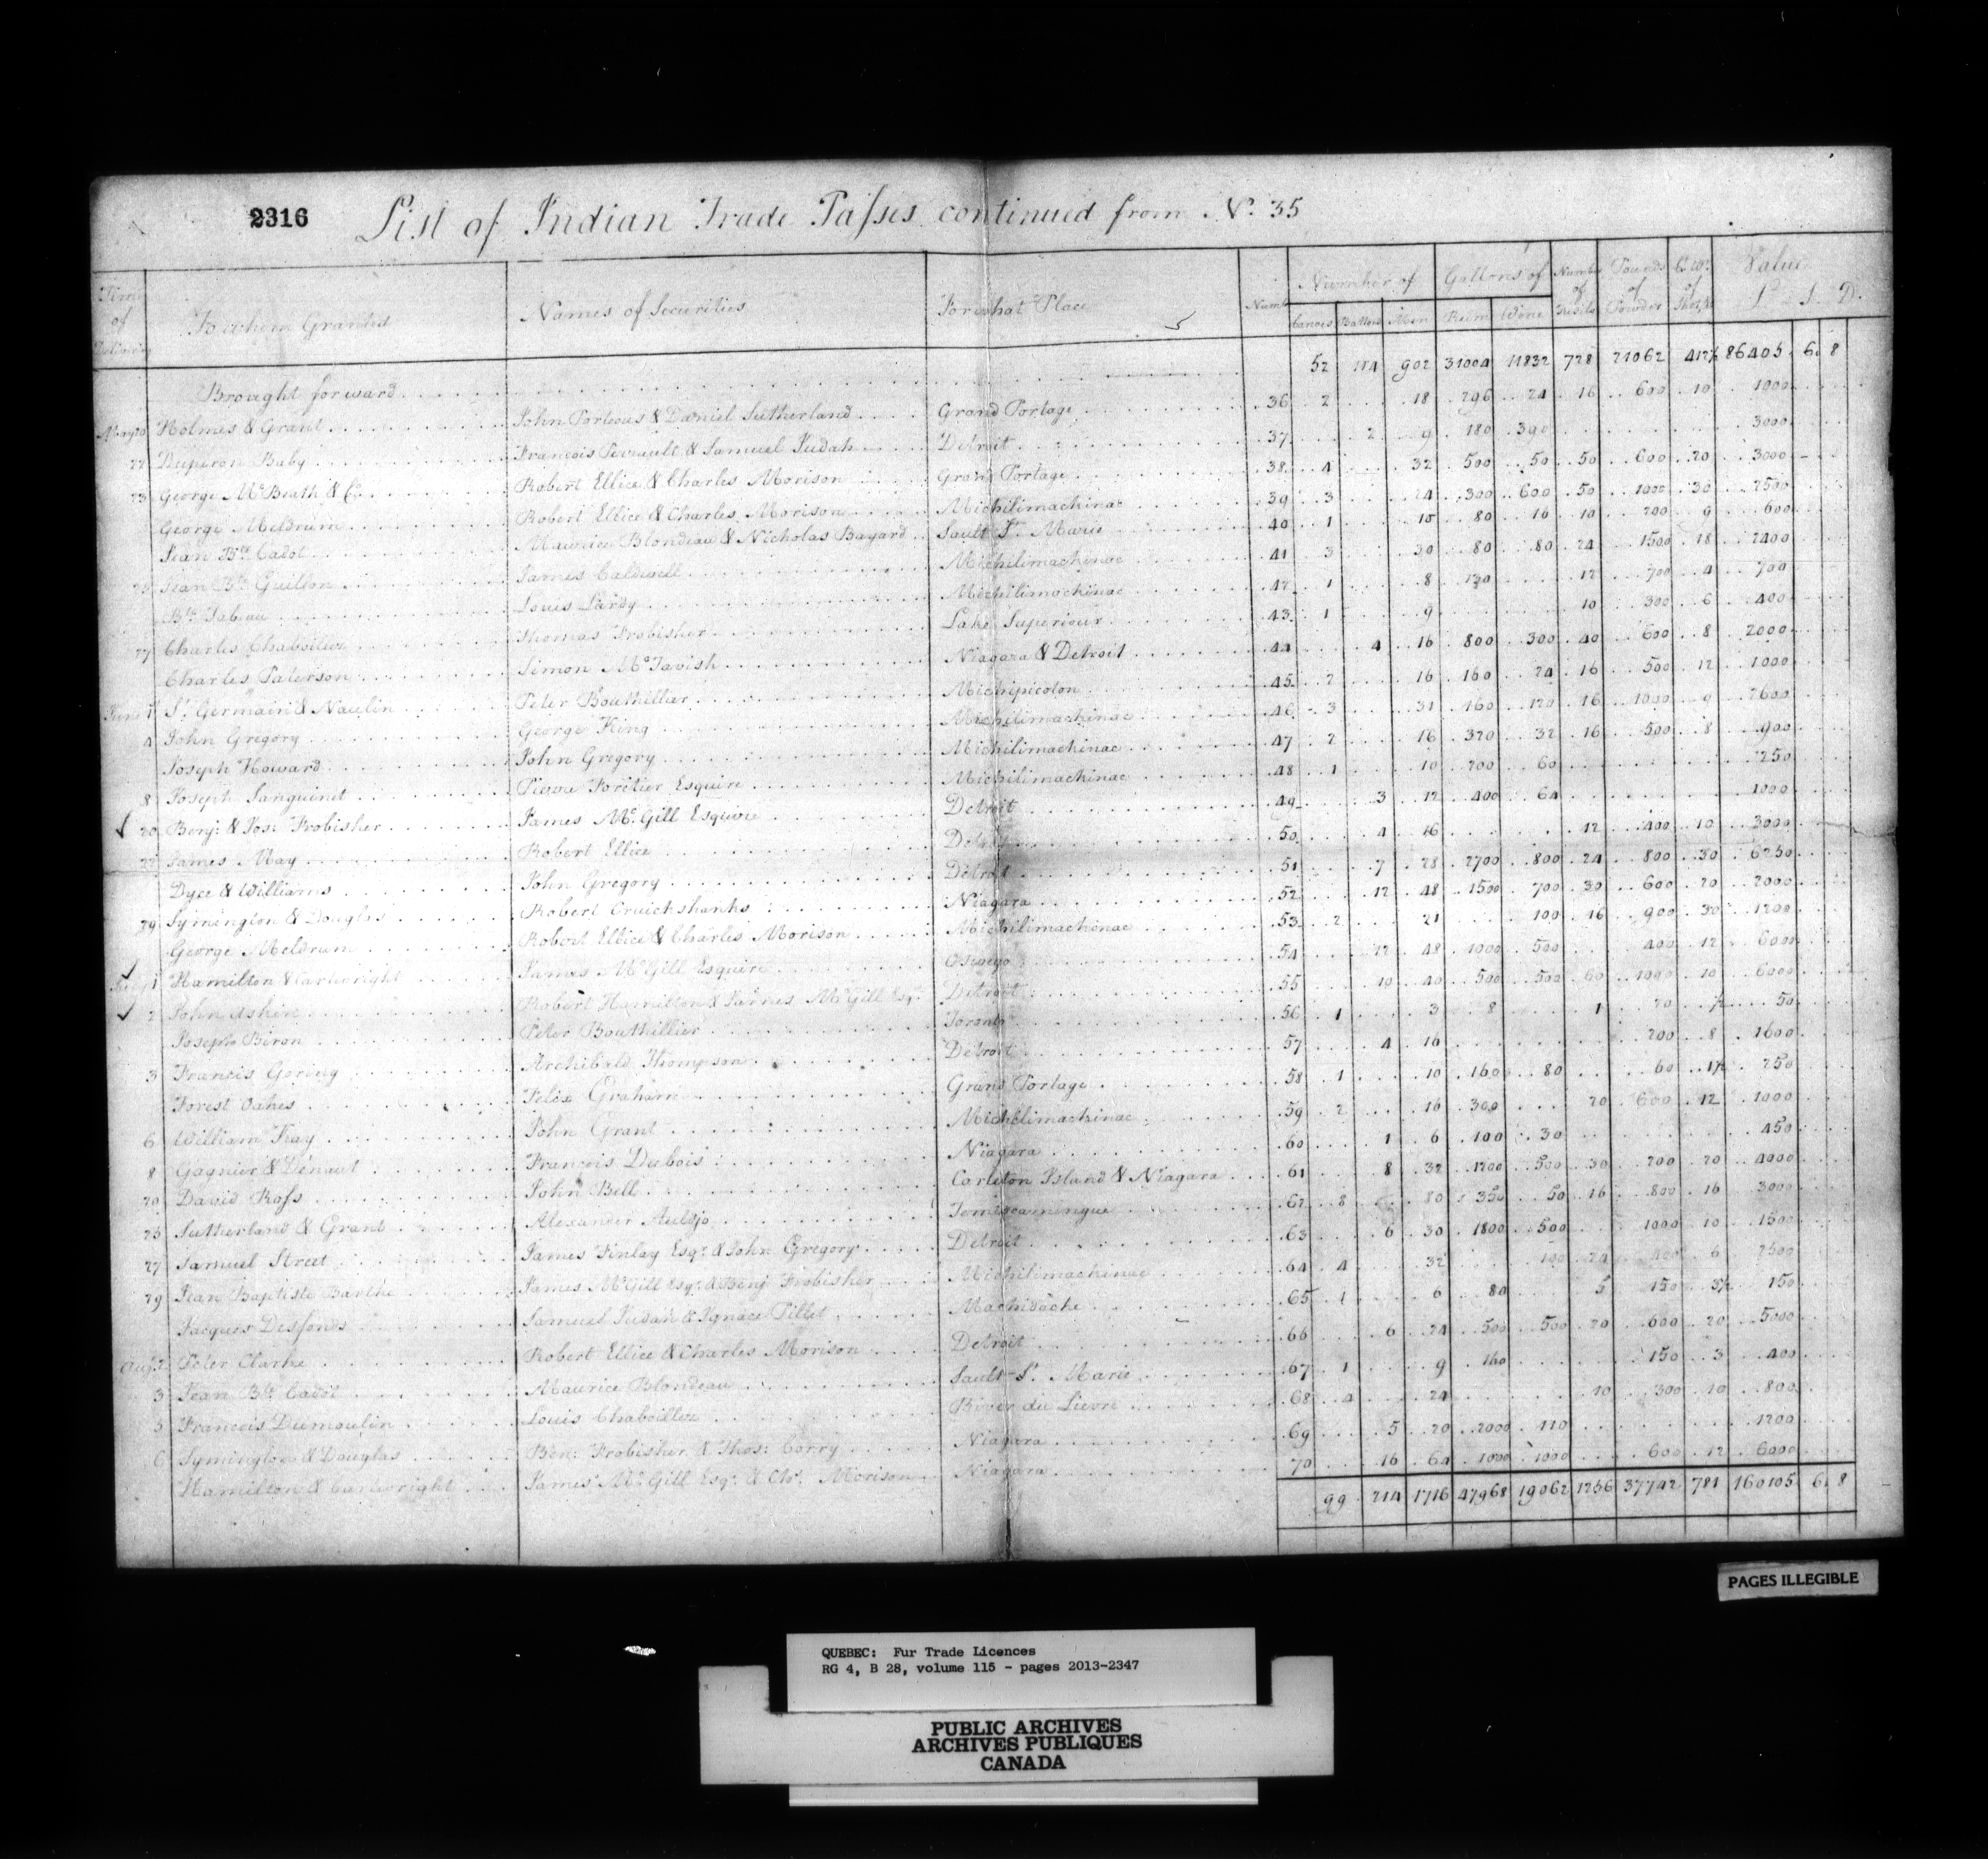 2316 List of Indian Trade Passes continued from No. 35
Time of Delivering | To whom Granted | Names of Securities | For what Place | Numb | Number of Canoes | Battoes | Men | Gallons of Rum | Wine | Number of Fusils | Pounds of Powder | Ct. Wt. of Shot | Value £ S D.
Brought forward 52 114 902 31004 11832 728 21062 86405 6 8
May 20 Holmes & Grant John Porteous & Daniel Sutherland Grand Portage 36 2 18 296 24 16 600 10 1000
22 Duperon Baby Francois Perrault & Samuel Judah Detroit 37 2 9 180 390 3000
23 George McBeath & Co. Robert Ellice & Charles Morison Grand Portage 38 4 32 500 50 50 600 20 3000
George Meldrum Robert Ellice & Charles Morison Michilimackinac 39 3 24 300 600 50 1000 30 2500
Jean Bte. Cadot Maurice Blondeau & Nicholas Bayard Sault St. Marie 40 1 10 80 16 10 200 9 600
Jean Bte. Guillon James Caldwell Michilimackinac 41 3 30 80 80 24 1500 18 2400
Bte. Tabeau Louis Lardy Michilimackinac 42 1 8 130 12 700 4 700
27 Charles Chaboillez Thomas Frobisher Lake Superiour 43 1 9 10 300 6 400
Charles Paterson Simon McTavish Niagara & Detroit 44 4 16 800 300 40 600 8 2000
June 1 St. Germain & Naulin Peter Bouthillier Michipicoton 45 2 16 160 24 16 500 12 1000
4 John Gregory George King Michilimackinac 46 3 31 160 120 16 1000 9 2600
Joseph Howard John Gregory Michilimackinac 47 2 16 320 32 16 500 8 900
8 Joseph Sanguinet Pierre Foretier Esquire Michilimackinac 48 1 10 200 60 250
20 Benj: & Jos: Frobisher James McGill Esquire Detroit 49 3 12 400 64 1000
22 James May Robert Ellice Detroit 50 4 16 12 400 10 3000
Dyce & Williams John Gregory Detroit 51 7 28 2700 800 24 800 30 6250
29 Symington & Douglas Robert Cruickshanks Niagara 52 12 48 1500 700 30 600 20 2000
George Meldrum Robert Ellice & Charles Morison Michilimackinac 53 2 21 100 16 900 30 1200
July 1 Hamilton & Cartwright James McGill Esquire Oswego 54 12 48 1000 500 400 12 6000
2 John Askin Robert Hamilton & James McGill Esqr. Detroit 55 10 40 500 500 60 1000 10 6000
Joseph Biron Peter Bouthillier Toronto 56 1 3 8 1 20 ½ 50
3 Francis Goring Archibald Thompson Detroit 57 4 16 200 8 1600
Forest Oakes Felix Graham Grand Portage 58 1 10 160 80 60 1½ 250
6 William Kay John Grant Michilimackinac 59 2 16 300 20 600 12 1000
8 Gagnier & Denaut Francois Dubois Niagara 60 1 6 100 30 450
20 David Ross John Bell Carleton Island & Niagara 61 8 32 1200 500 30 200 20 4000
25 Sutherland & Grant Alexander Auldjo Temiscamingue 62 8 80 350 50 16 800 16 3000
27 Samuel Street James Finlay Esqr. & John Gregory Detroit 63 6 30 1800 500 1000 10 1500
29 Jean Baptiste Barthe James McGill Esqr. & Benj Frobisher Michilimackinac 64 4 32 100 24 400 6 2500
Jacques Desfonds Samuel Judah & Ignace Pillet Machidache 65 1 6 80 5 150 150
Augt. 2 Peter Clarke Robert Ellice & Charles Morison Detroit 66 6 24 500 500 20 600 20 5000
3 Jean Bte. Cadot Maurice Blondeau Sault St. Marie 67 1 9 160 150 3 400
5 Francois Dumoulin Louis Chaboillez River du Lievre 68 4 24 10 300 10 800
6 Symington & Douglas Ben: Frobisher & Thos: Corry Niagara 69 5 20 2000 110 1200
Hamilton & Cartwright James McGill Esqr. & Chs. Morison Niagara 70 16 64 1000 1000 600 12 6000
99 214 1716 47968 19062 1256 37742 781 160105 6 8
PAGES ILLEGIBLE
QUEBEC: Fur Trade Licences
RG 4, B 28, volume 115 - pages 2013-2347
PUBLIC ARCHIVES
ARCHIVES PUBLIQUES
CANADA